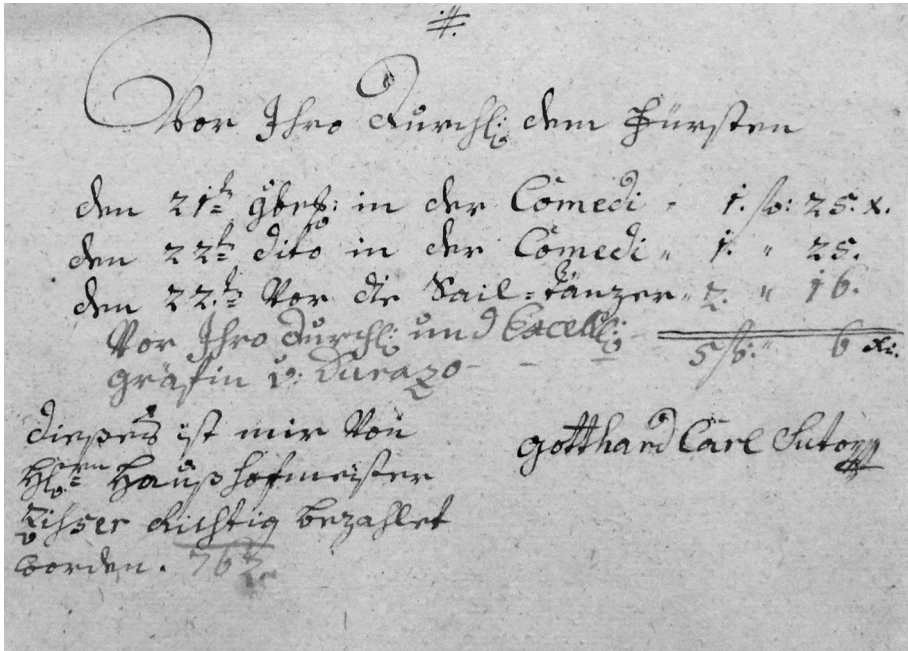 #.
Vor Ihro Durchl: dem Fürsten
den 21t 9bes: in der Comedi " 1. fl: 25. x.
den 22t dito in der Comedi " 1. " 25.
den 22.t Vor die Sail=Tänzer " 2. " 16.
Vor Ihro Durchl: und Excell: 5 fl: " 6 xr:
Gräfin v: Durazo
dießes ist mir Von
Hern Haußhofmeister
Richtig bezahlet
worden. 763.
Gotthard Carl Sutor